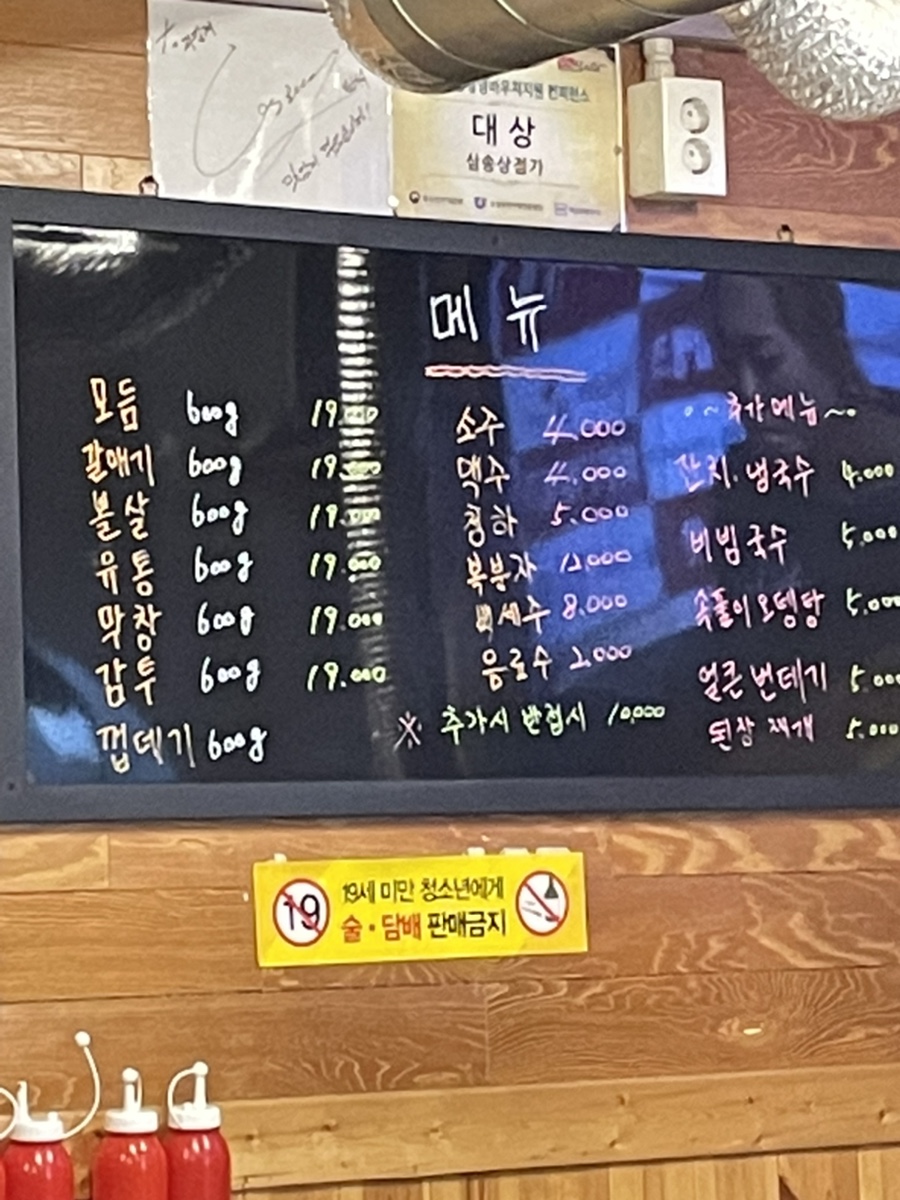 대상
심송상점가
메뉴
모듬 600g 19.000
갈매기 600g 19.000
볼살 600g 19.000
유통 600g 19.000
막창 600g 19.000
감투 600g 19.000
껍데기 600g
소주 4.000
맥주 4.000
청하 5.000
복분자
백세주 8.000
음료수 2.000
※ 추가시 반접시 10.000
~추가메뉴~
잔치.냉국수 4.000
비빔국수 5.000
속풀이오뎅탕 5.000
얼큰번데기 5.000
된장찌개 5.000
19
19세 미만 청소년에게
술·담배 판매금지